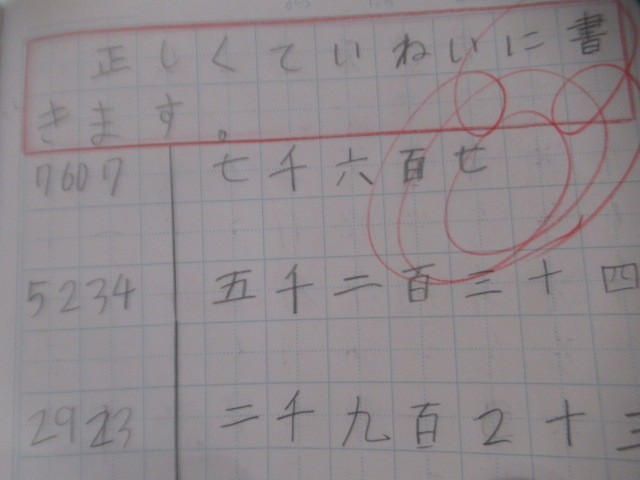 正しくていねいに書
きます。
7607 七千六百七
5234 五千二百三十四
2923 二千九百2十三